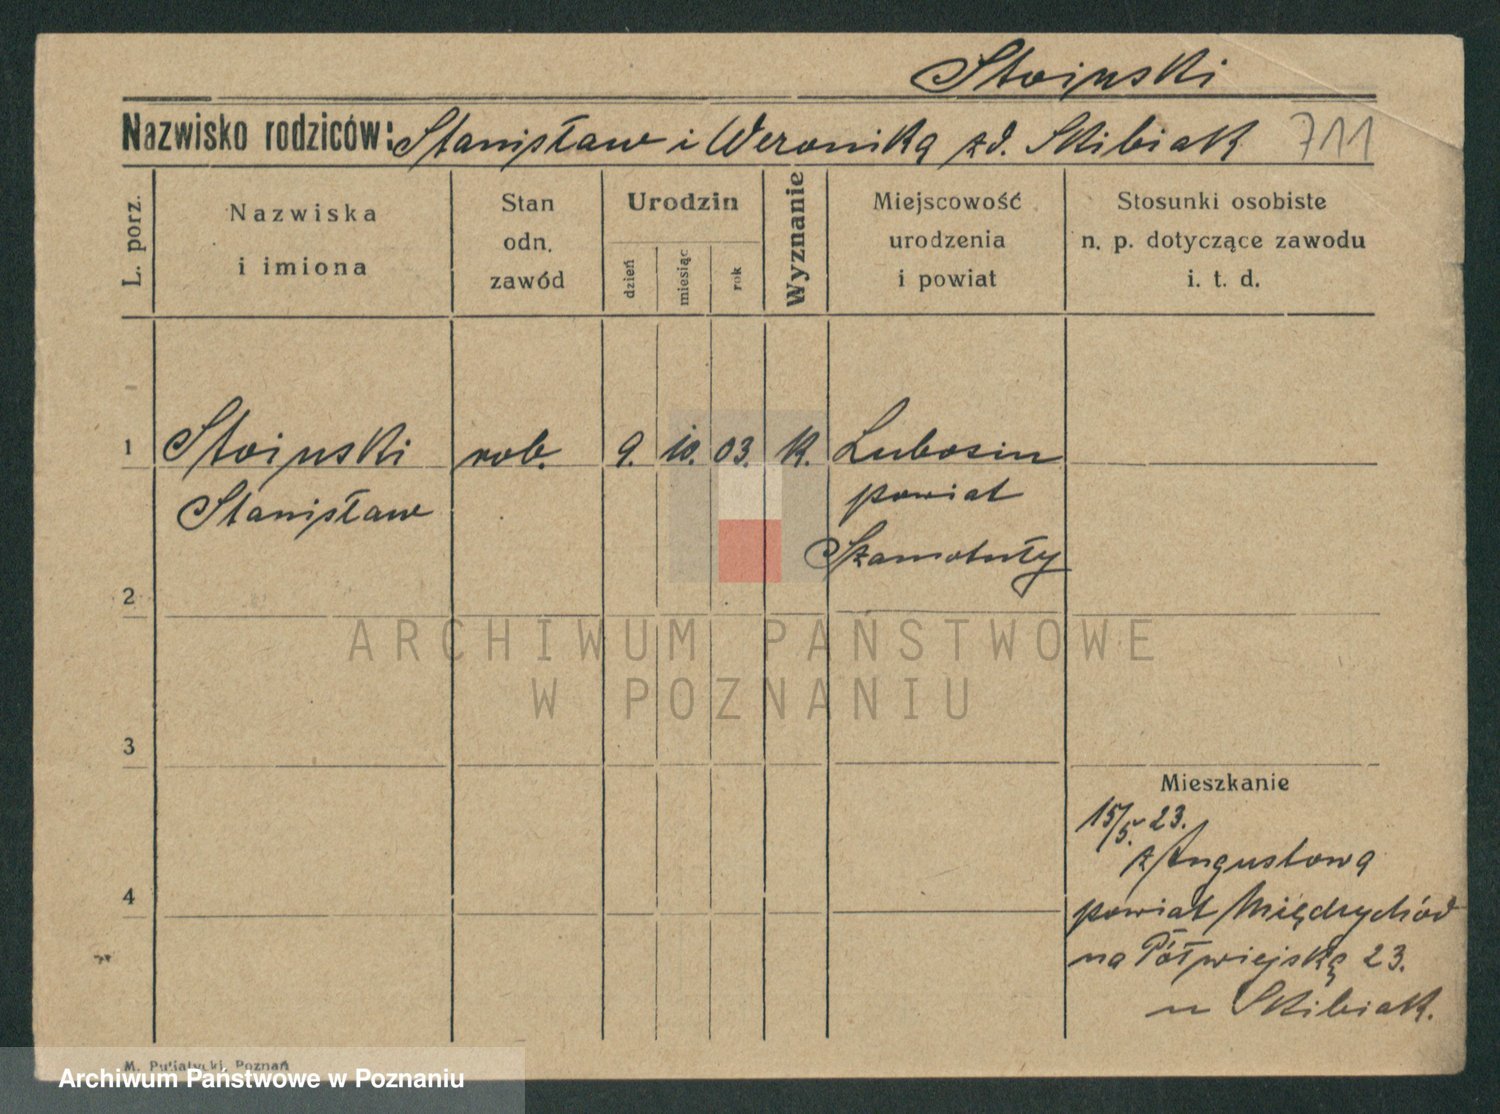 Stoinski
Nazwisko rodziców: Stanisław i Weronika zd. Skibiak 711
L. porz.
Nazwiska
i imiona
Stan
odn.
zawód
Urodzin
dzień
miesiąc
rok
Wyznanie
Miejscowość
urodzenia
i powiat
Stosunki osobiste
n. p. dotyczące zawodu
i. t. d.
1 Stoinski rob. 9. 10. 03. K. Lubosin
Stanisław powiat
Szamotuły
2
ARCHIWUM PAŃSTWOWE
W POZNANIU
3
Mieszkanie
15/5. 23.
z Augustowa
4
powiat Międzychód
na Półwiejską 23.
u Skibiak.
M. Putiatycki, Poznań
Archiwum Państwowe w Poznaniu